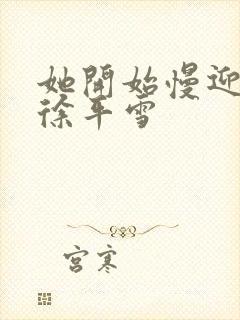 她開始慢迎
徐平雪
宮寒